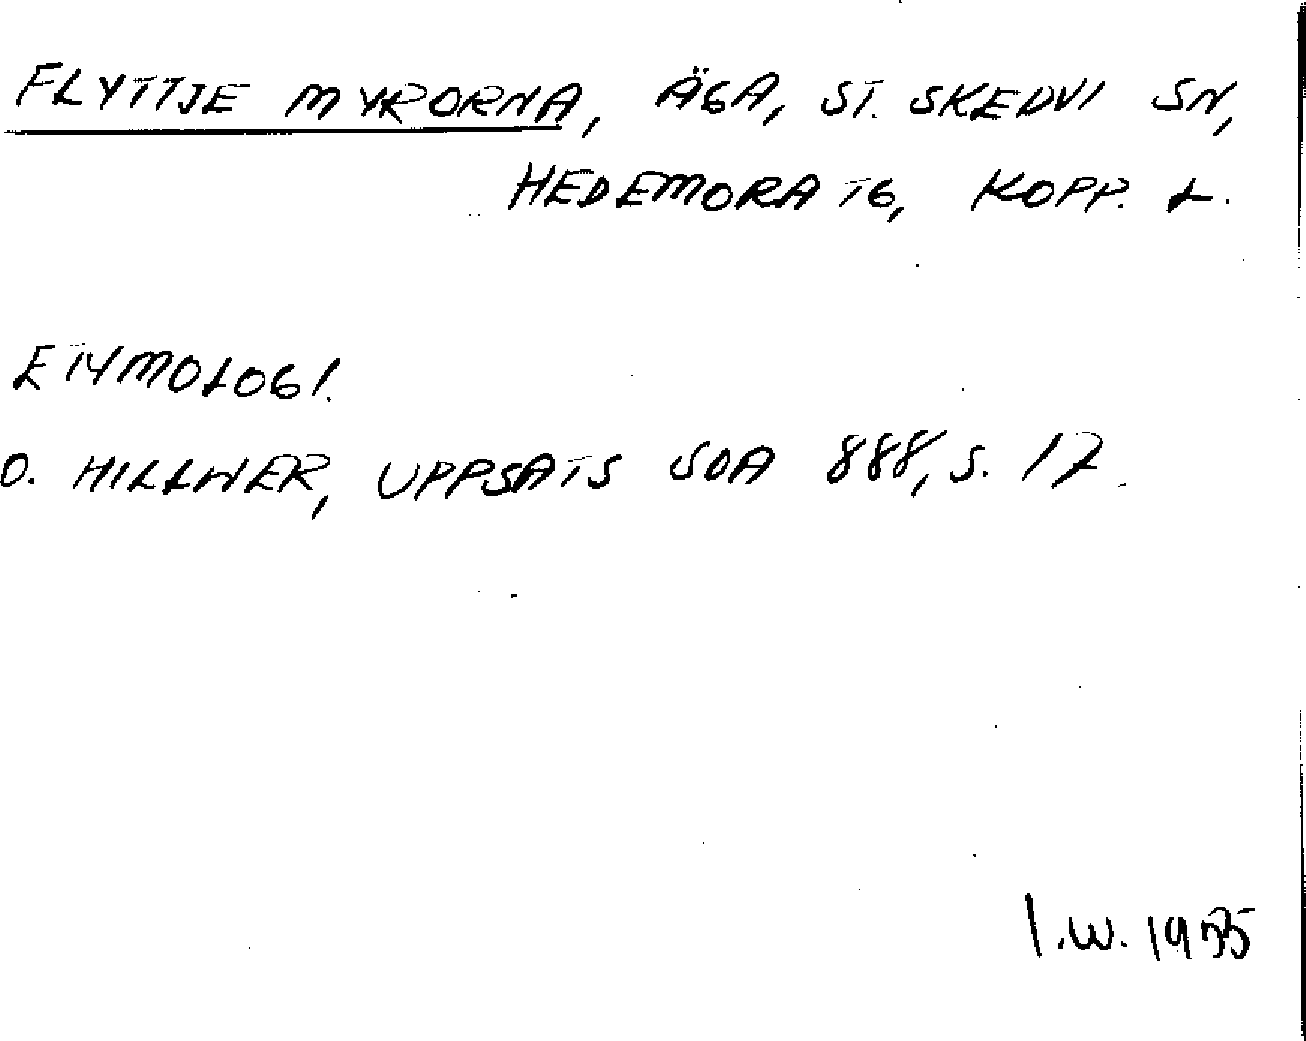 FLYTTJE MYRORNA, ÄGA, ST. SKEDVI SN,
HEDEMORA TG, KOPP. L.
ETYMOLOGI.
O. HILLNER, UPPSATS SOA 888, S. 12.
I.W. 1955